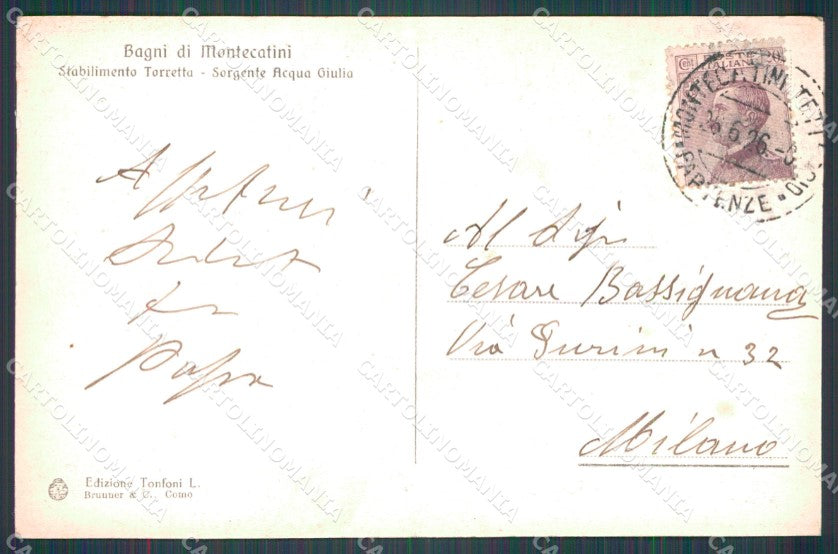 Bagni di Montecatini
Stabilimento Torretta - Sorgente Acqua Giulia
Cent
POSTE
ITALIANE
MONTECATINI
26.6.26.-8
PARTENZE
Affettuosi
Saluti
Papa
Al Sig
Cesare Bassignana
Via Durini n 32
Milano
Edizione Tonfoni L.
Brunner & C. Como
CARTOLINOMANIA